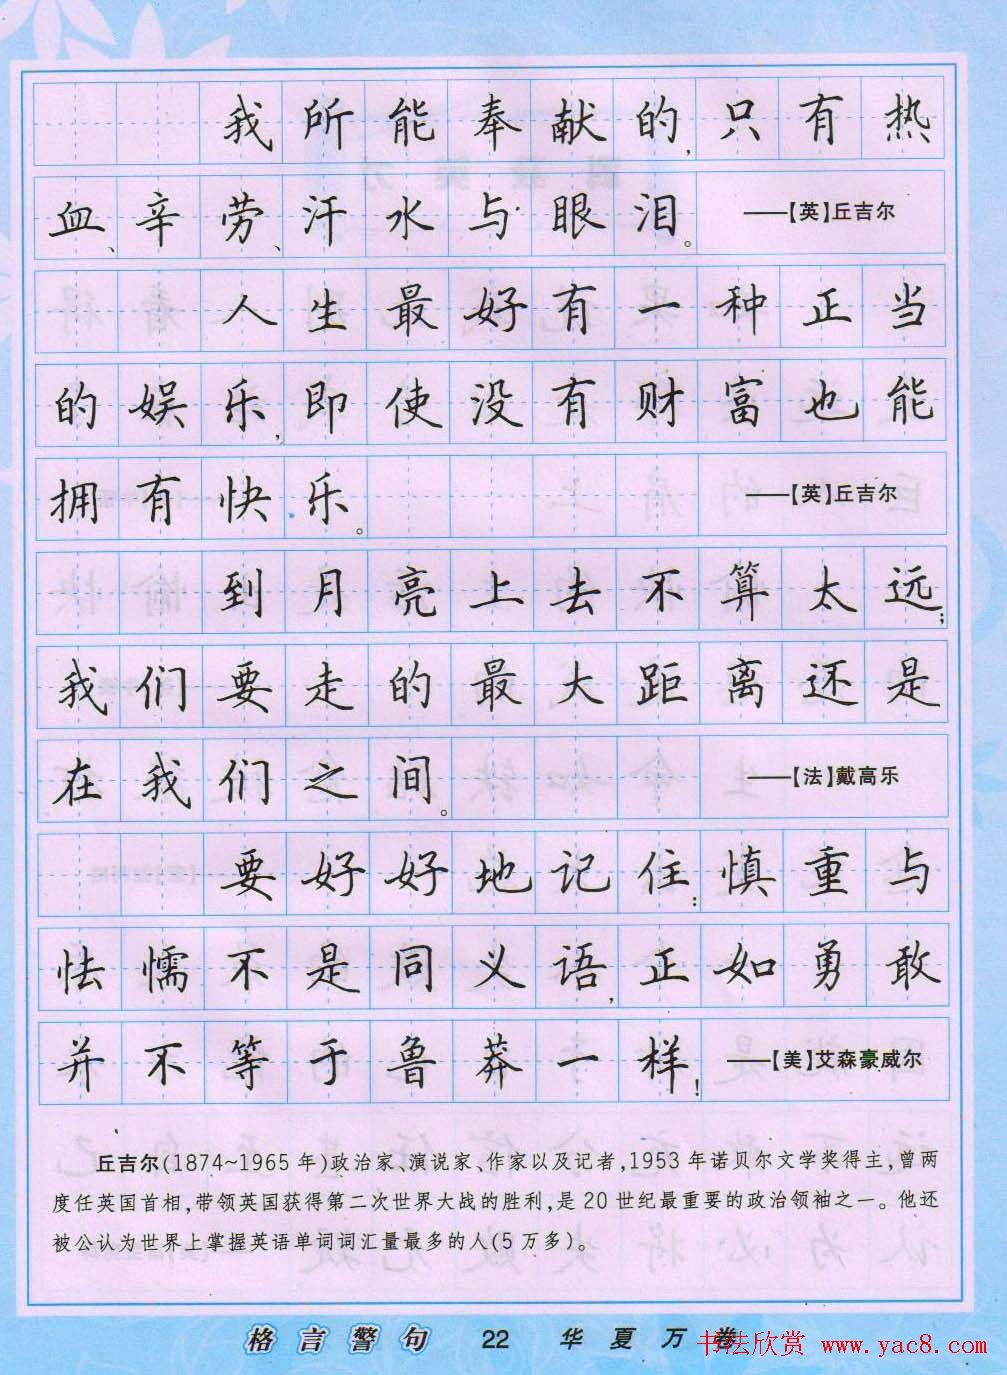 我所能奉献的,只有热
血、辛劳、汗水与眼泪。 ——【英】丘吉尔
人生最好有一种正当
的娱乐,即使没有财富也能
拥有快乐。 ——【英】丘吉尔
到月亮上去不算太远;
我们要走的最大距离还是
在我们之间。 ——【法】戴高乐
要好好地记住:慎重与
怯懦不是同义语,正如勇敢
并不等于鲁莽一样! ——【美】艾森豪威尔
丘吉尔(1874~1965年)政治家、演说家、作家以及记者,1953年诺贝尔文学奖得主,曾两
度任英国首相,带领英国获得第二次世界大战的胜利,是20世纪最重要的政治领袖之一。他还
被公认为世界上掌握英语单词词汇量最多的人(5万多)。
格言警句 22 华夏万卷
书法欣赏 www.yac8.com